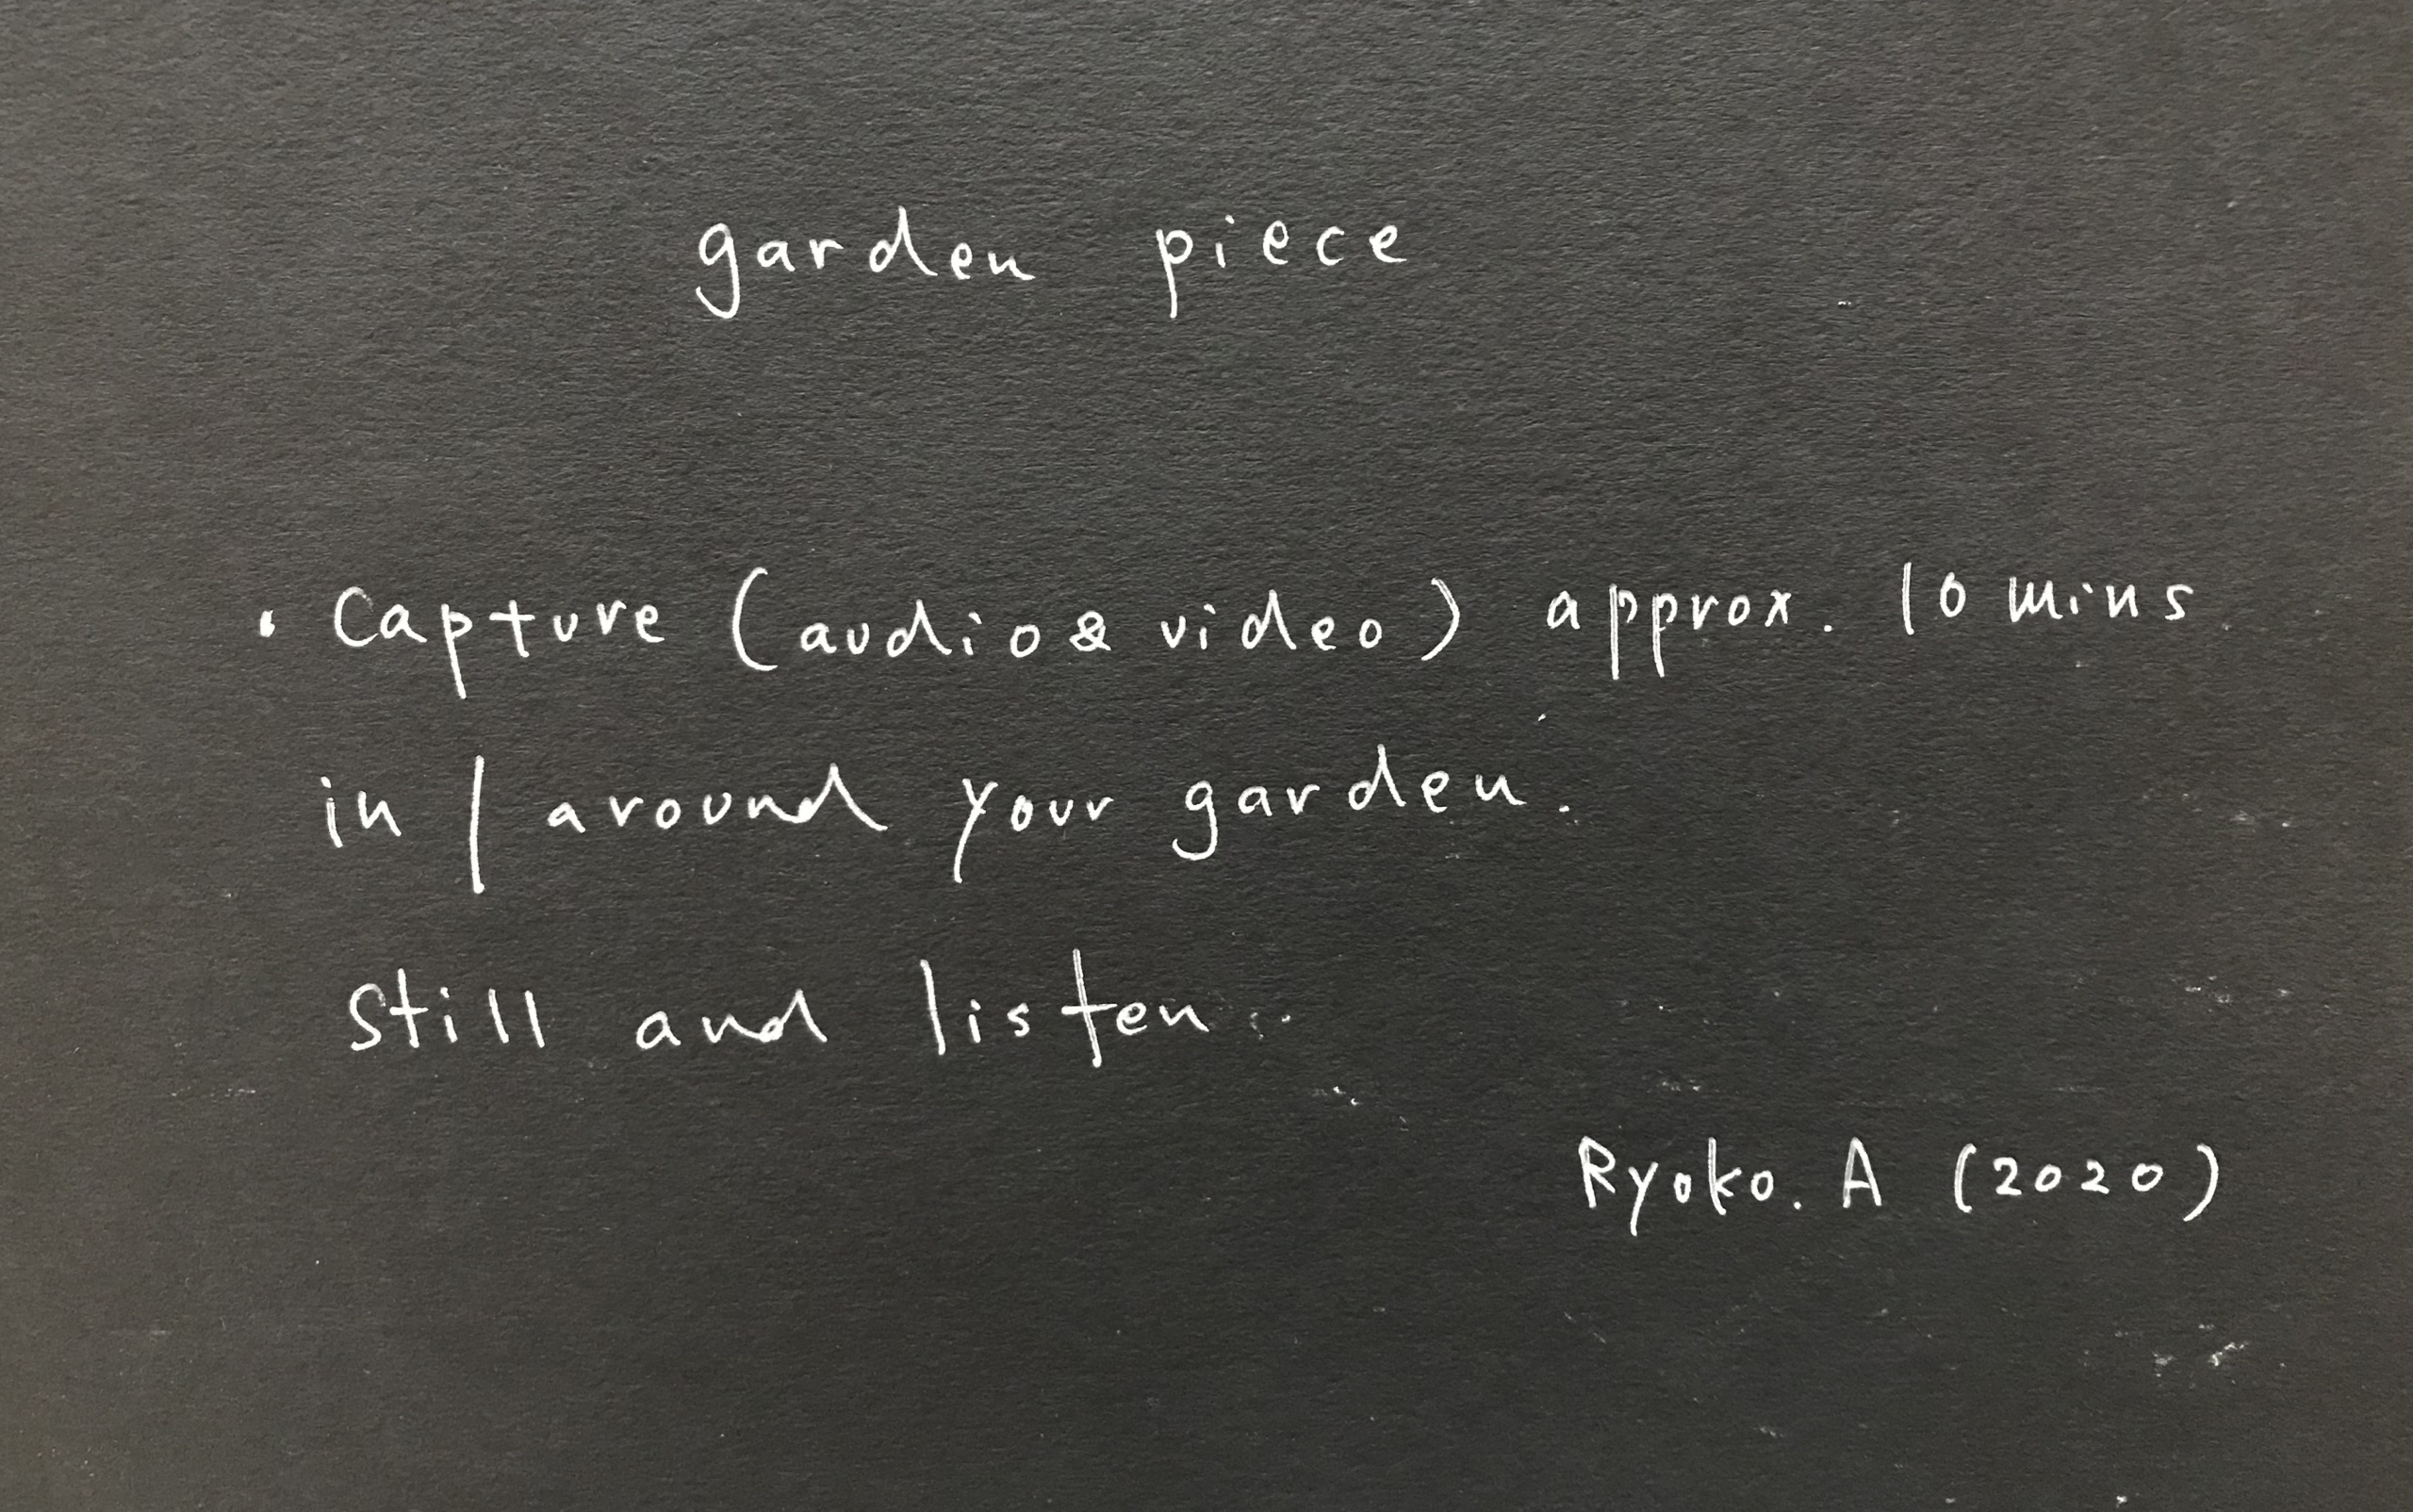 garden piece
• Capture (audio & video) approx. 10 mins
in / around your garden.
still and listen..
Ryoko. A (2020)